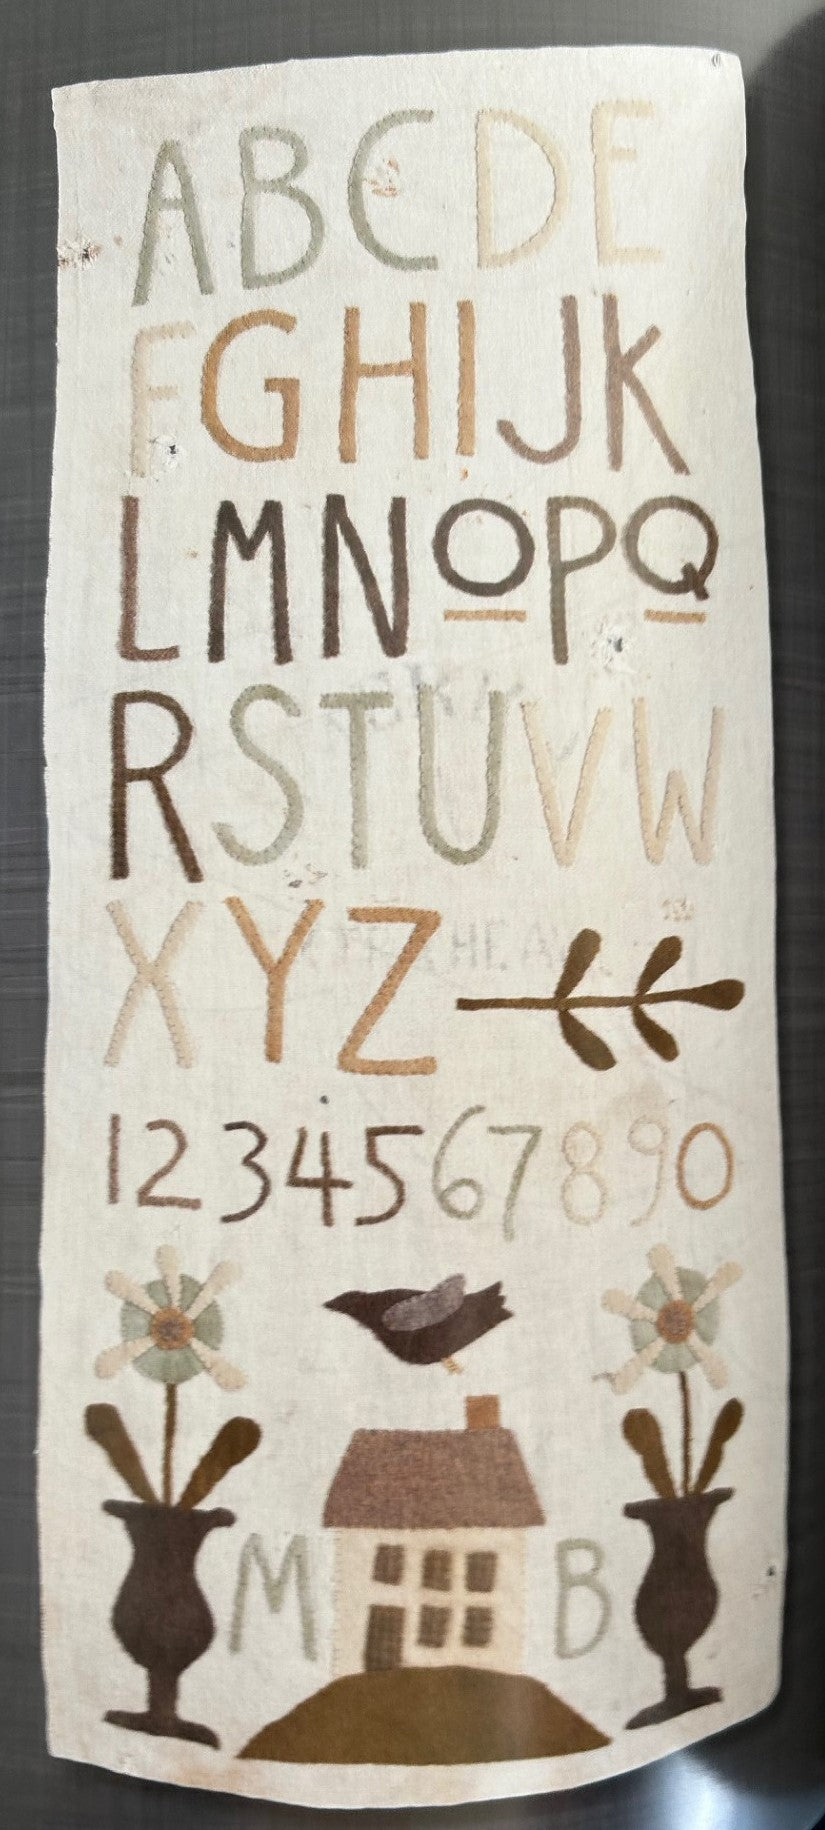 ABCDE
FGHIJK
LMNOPQ
RSTUVW
XYZ
1234567890
M B